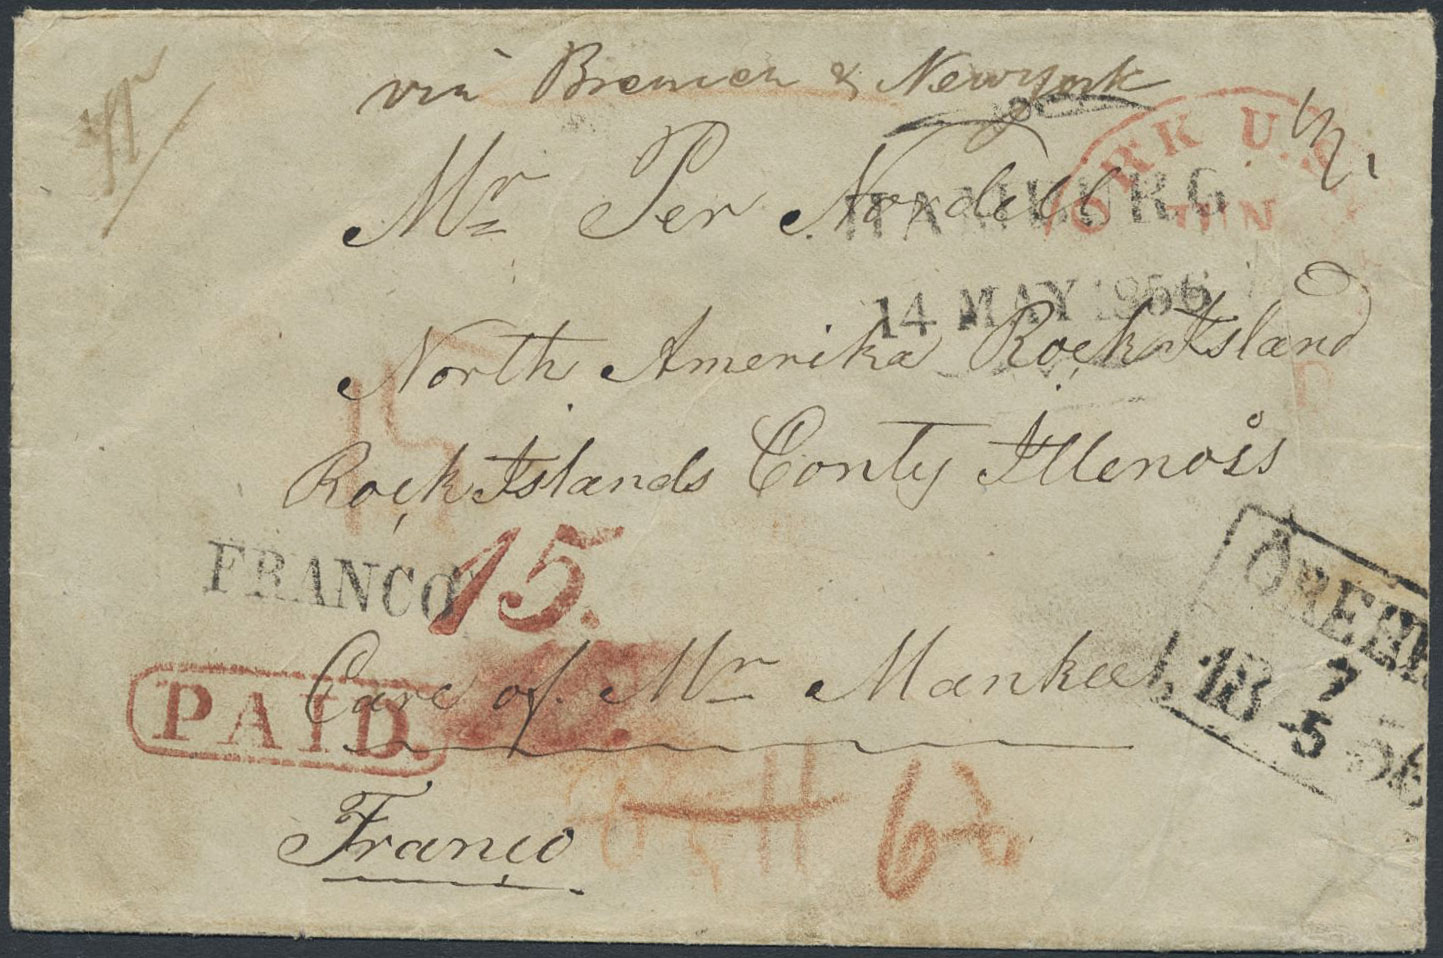 via Bremen & Newyork
Mr Per Nordell
HAMBURG
14 MAY 1856
ORK U.S.
JUN
North Amerika Rock Island
Rock Islands Conty Illenois
15
FRANCO
15.
ÖREBR
18 7 5 56
Care of Mr Mankee
PAID.
Franco